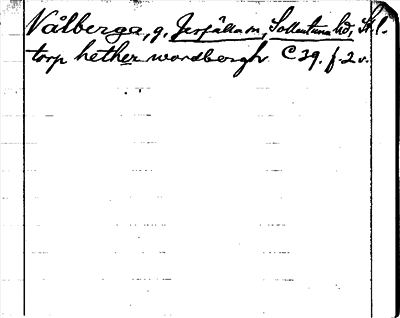 Vålberga, g. Jerfälla sn, Sollentuna hd, St. l.
torp hether wordbergh C 29. f. 2 v.